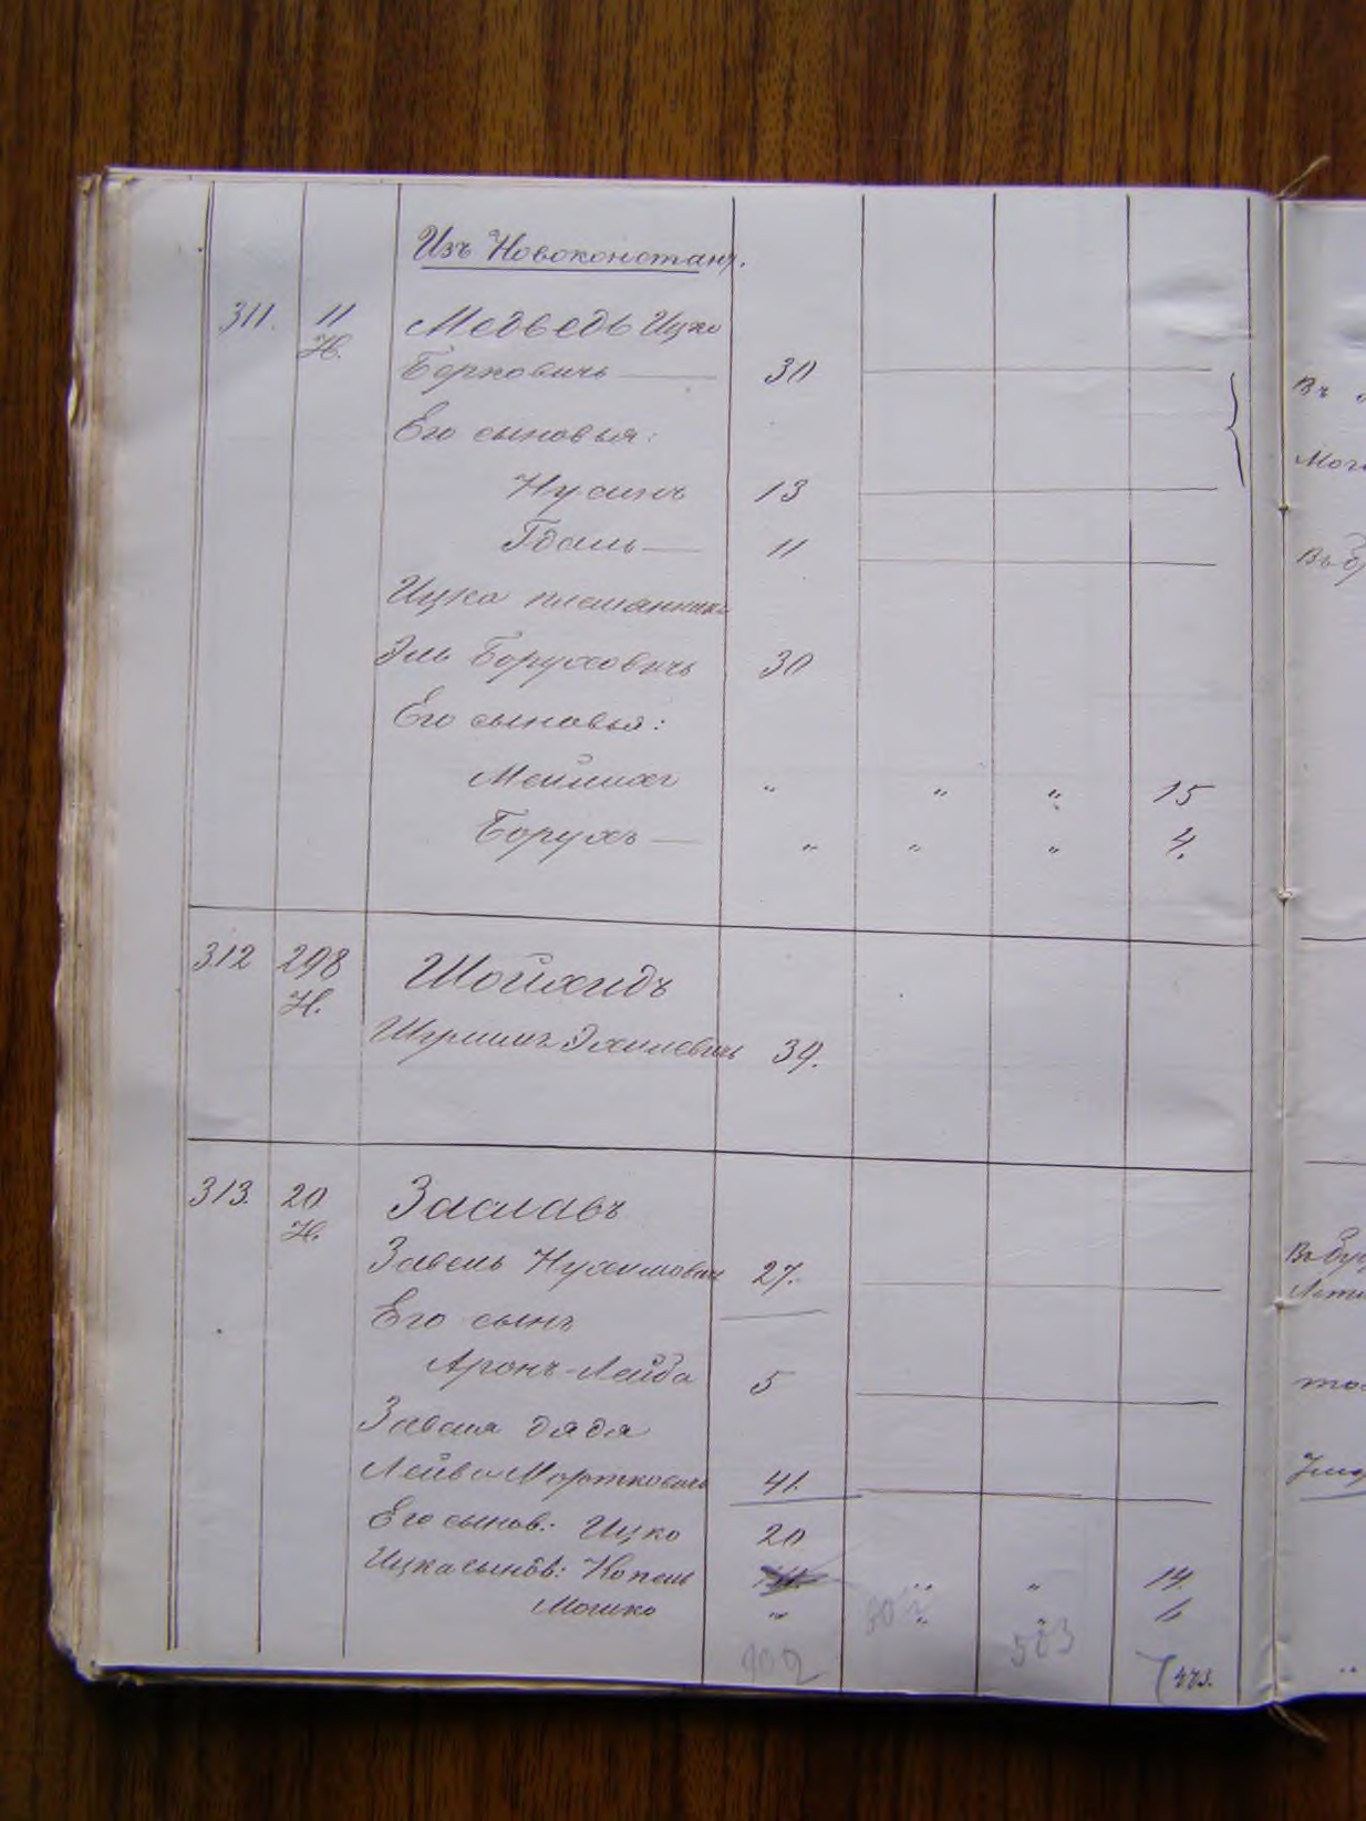 Изъ Новоконстант.
311. 11 Медведь Ицко
Н.
Берковичъ — 30
Въ
Его сыновья:
Мог
Нусинъ 13
Гдаль — 11
Въ
Ицка племянникъ
Эль Боруховичъ 30
Его сыновья:
Мейлихъ " " " 15
Борухъ — " " " 4.
312 298 Шойхидъ
Н.
Шулимъ Эхилевичъ 39.
313. 20 Заславъ
Н.
Завель Нухимович 27.
Его сынъ
Аронъ-Лейба 5
Завеля дядя
Лейба Мортковичъ 41.
Его сынов.: Ицко 20
Ицка сынов: Копель " " 14.
Мошко " " " 6
902 503
473.